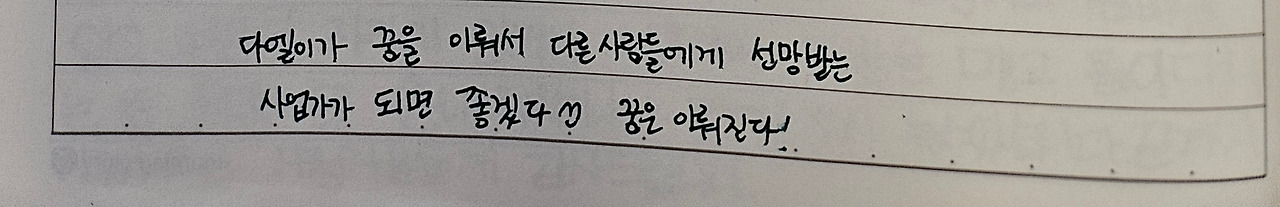 다엘이가 꿈을 이뤄서 다른사람들에게 선망받는
사업가가 되면 좋겠다 꿈은 이뤄진다!